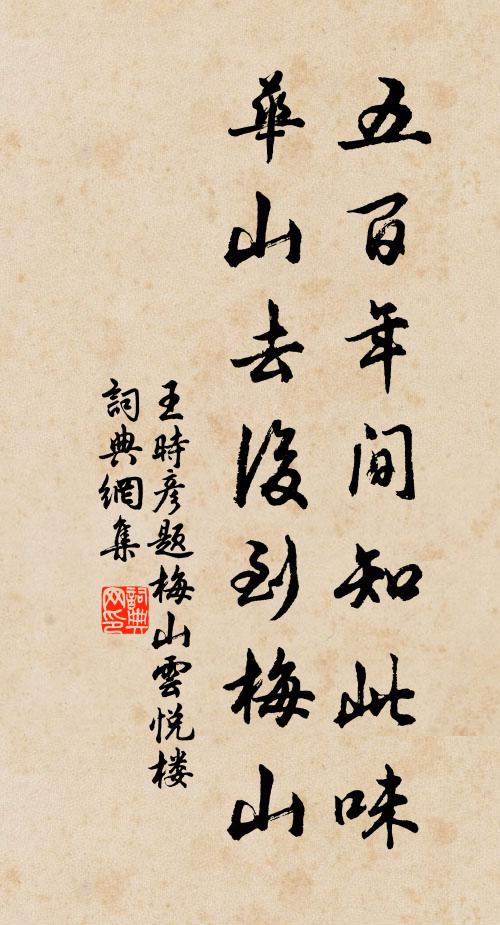 五百年間知此味
華山去後到梅山
王時彥題梅山雲悅楼
詞典網集
詞典
网印